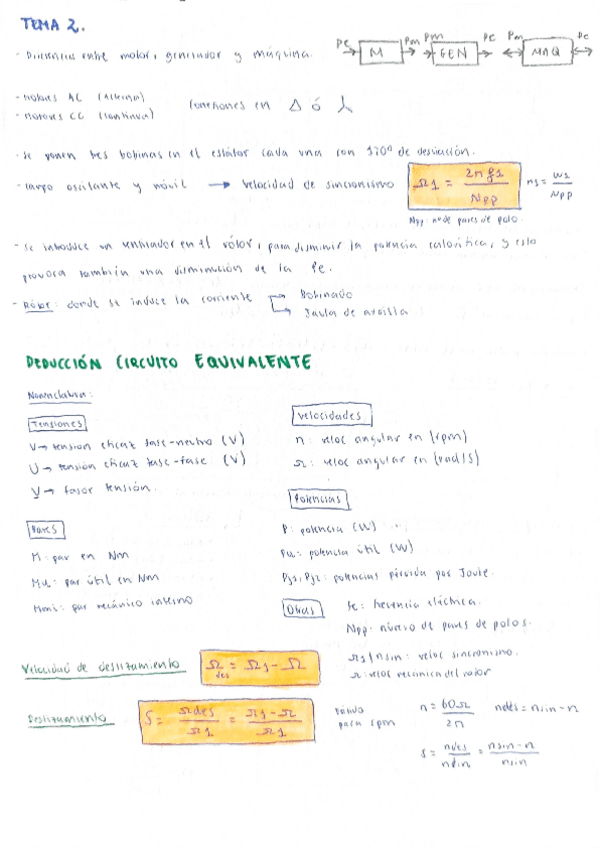 TEMA 2.
- Diferencias entre motor, generador y máquina.
Pe → M → Pm Pm → GEN → Pe Pm ↔ MAQ ↔ Pe
- Motores AC (Alterna)
- Motores CC (continua)
Conexiones en Δ ó
- Se ponen tres bobinas en el estátor cada una con 120º de desviación.
- Campo oscilante y móvil → Velocidad de sincronismo Ω1 = 2π f1 / Npp n1 = ω1 / Npp
Npp: nº de pares de polo.
- Se introduce un ventilador en el rótor, para disminuir la potencia calorífica, y esto
provoca también una disminución de la Pe.
- Rótor: donde se induce la corriente → Bobinado
→ Jaula de ardilla
DEDUCCIÓN CIRCUITO EQUIVALENTE
Nomenclatura:
Tensiones
V → tensión eficaz fase-neutro (V)
U → tensión eficaz fase-fase (V)
V → fasor tensión.
Velocidades
n: veloc angular en (rpm)
Ω: veloc angular en (rad/s)
Pares
M: par en Nm
Mu: par útil en Nm
Mmi: par mecánico interno
Potencias
P: potencia (W)
Pu: potencia útil (W)
Pj1, Pj2: potencias pérdida por Joule.
Otras
fe: frecuencia eléctrica.
Npp: número de pares de polos.
Ω1/nsin: veloc sincronismo.
Ω: veloc mecánica del rotor
Velocidad de deslizamiento Ωdes = Ω1 - Ω
Deslizamiento S = Ωdes / Ω1 = Ω1 - Ω / Ω1
para rpm n = 60Ω / 2π ndes = nsin - n
s = ndes / nsin = nsin - n / nsin